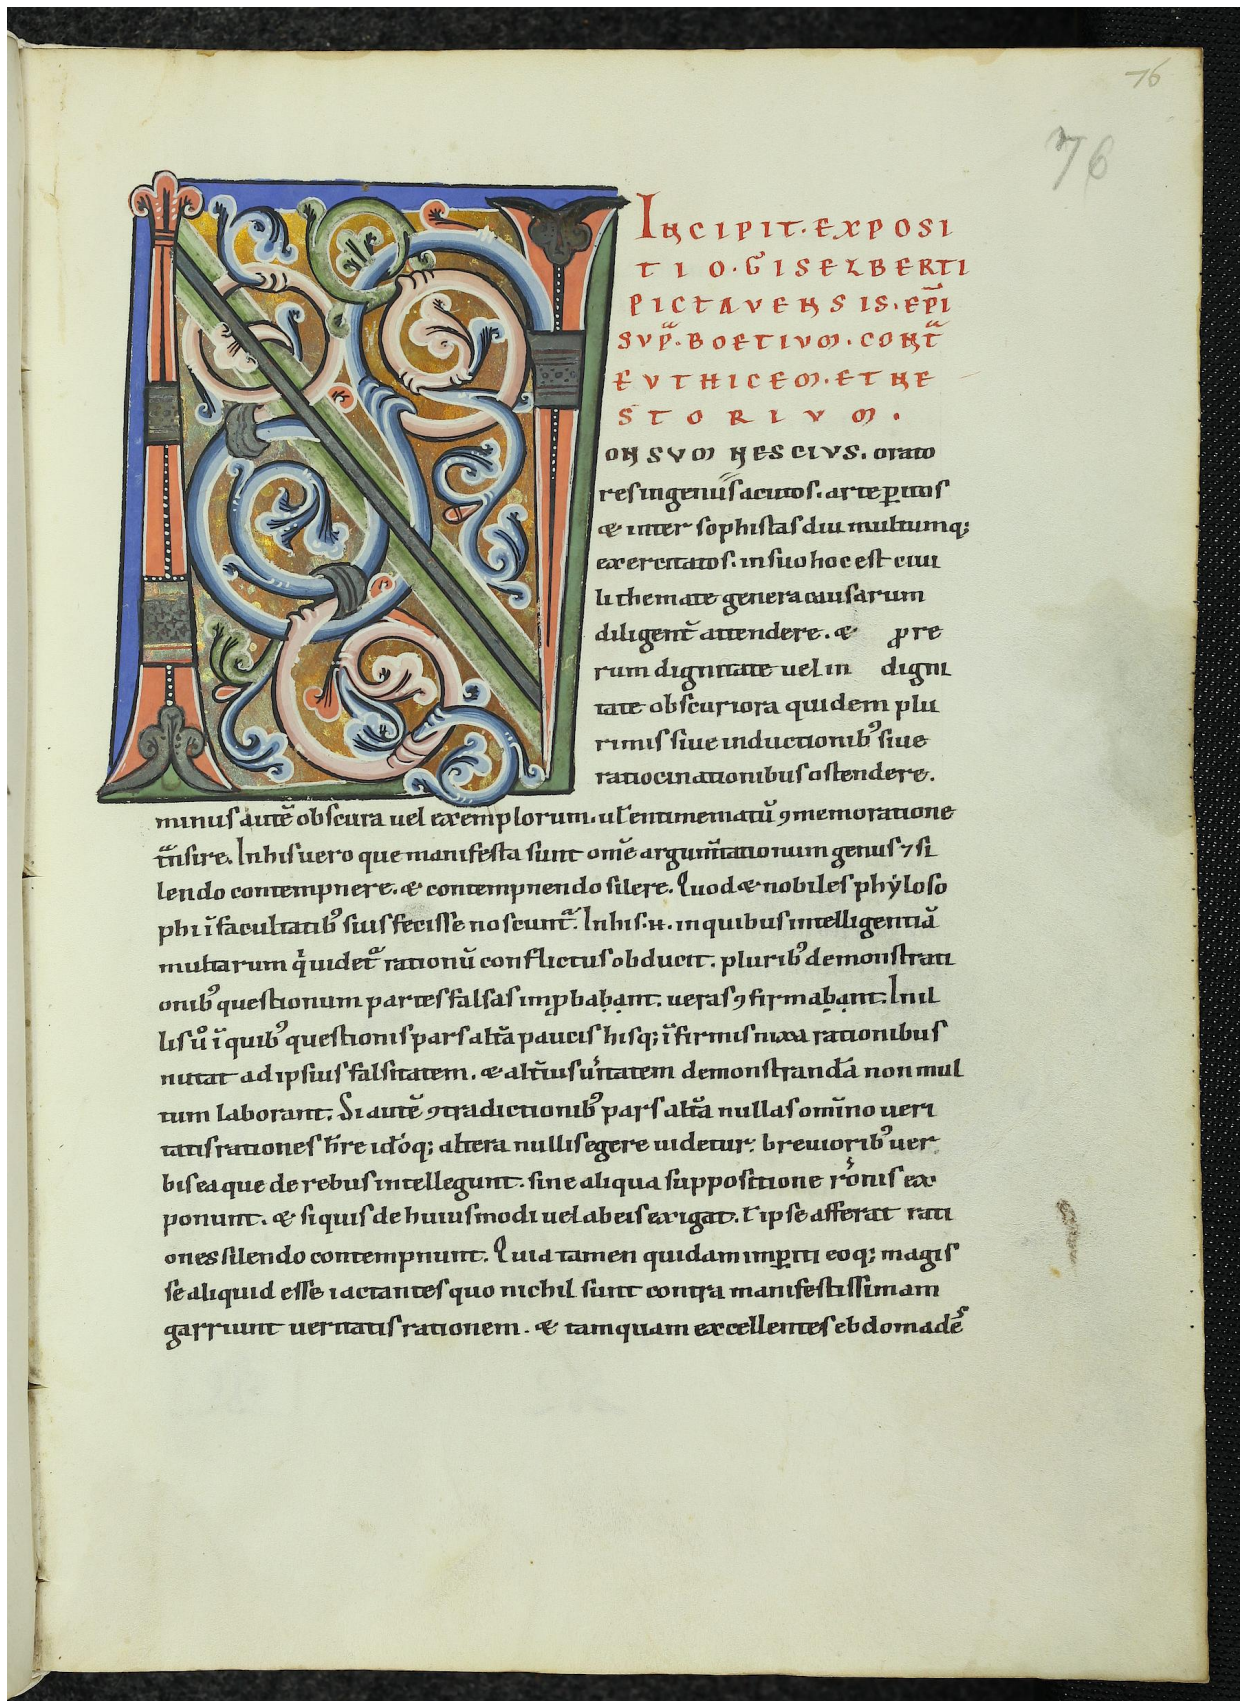 76
76
INCIPIT·EXPOSI
TIO·GISELBERTI
PICTAVENSIS·EP̄I
SVP̃·BOETIVM·CONT̃
EVTHICEM·ET NE
STORIVM·
NON SVM NESCIVS. orato
res ingenii acutos. arte ꝑitos
& inter sophistas diu multumq;
exercitatos. in suo hoc est ciui
li themate genera causarum
diligent̄ attendere. & p̱re
rum dignitate uel in digni
tate obscuriora quidem plu
rimis siue inductionibꝰ siue
ratiocinationibus ostendere.
minus autē obscura uel exemplorum. ut̄ entimematū ꝯmemoratione
t̃nsire. In his uero que manifesta sunt om̄e argum̄tationum genus ⁊ si
lendo contempnere. & contempnendo silere. Quod & nobiles phẏloso
phi ī facultatibꝰ suis fecisse noscunt᷑. In his .n. in quibus intelligentiā
multarum q̇idet᷑ rationū conflictus obducit. pluribꝰ demonstrati
onibꝰ questionum partes falsas imꝓbabant. ueras ꝯfirmabant. In il
lis uͦ ī quibꝰ questionis pars altā paucis hisq; īfirmis nixa rationibus
nutat ad ipsius falsitatem. & alt̄ius ūitatem demonstrandā non mul
tum laborant. Si autē ꝯtradictionibꝰ pars altā nullas omīno ueri
tatis rationes h̄re id̄oq; altera nullis egere uidetur. breuioribꝰ uer
bis ea que de rebus intellegunt. sine aliqua suppositione rōnis ex
ponunt. & si quis de huiusmodi uel ab eis exigat. ł ipse afferat rati
ones silendo contempnunt. Quia tamen quidam imꝑiti eoq; magis
se aliquid esse iactantes quo nichil sunt contra manifestissimam
garriunt ueritatis rationem. & tamquam excellentes ebdomadēs